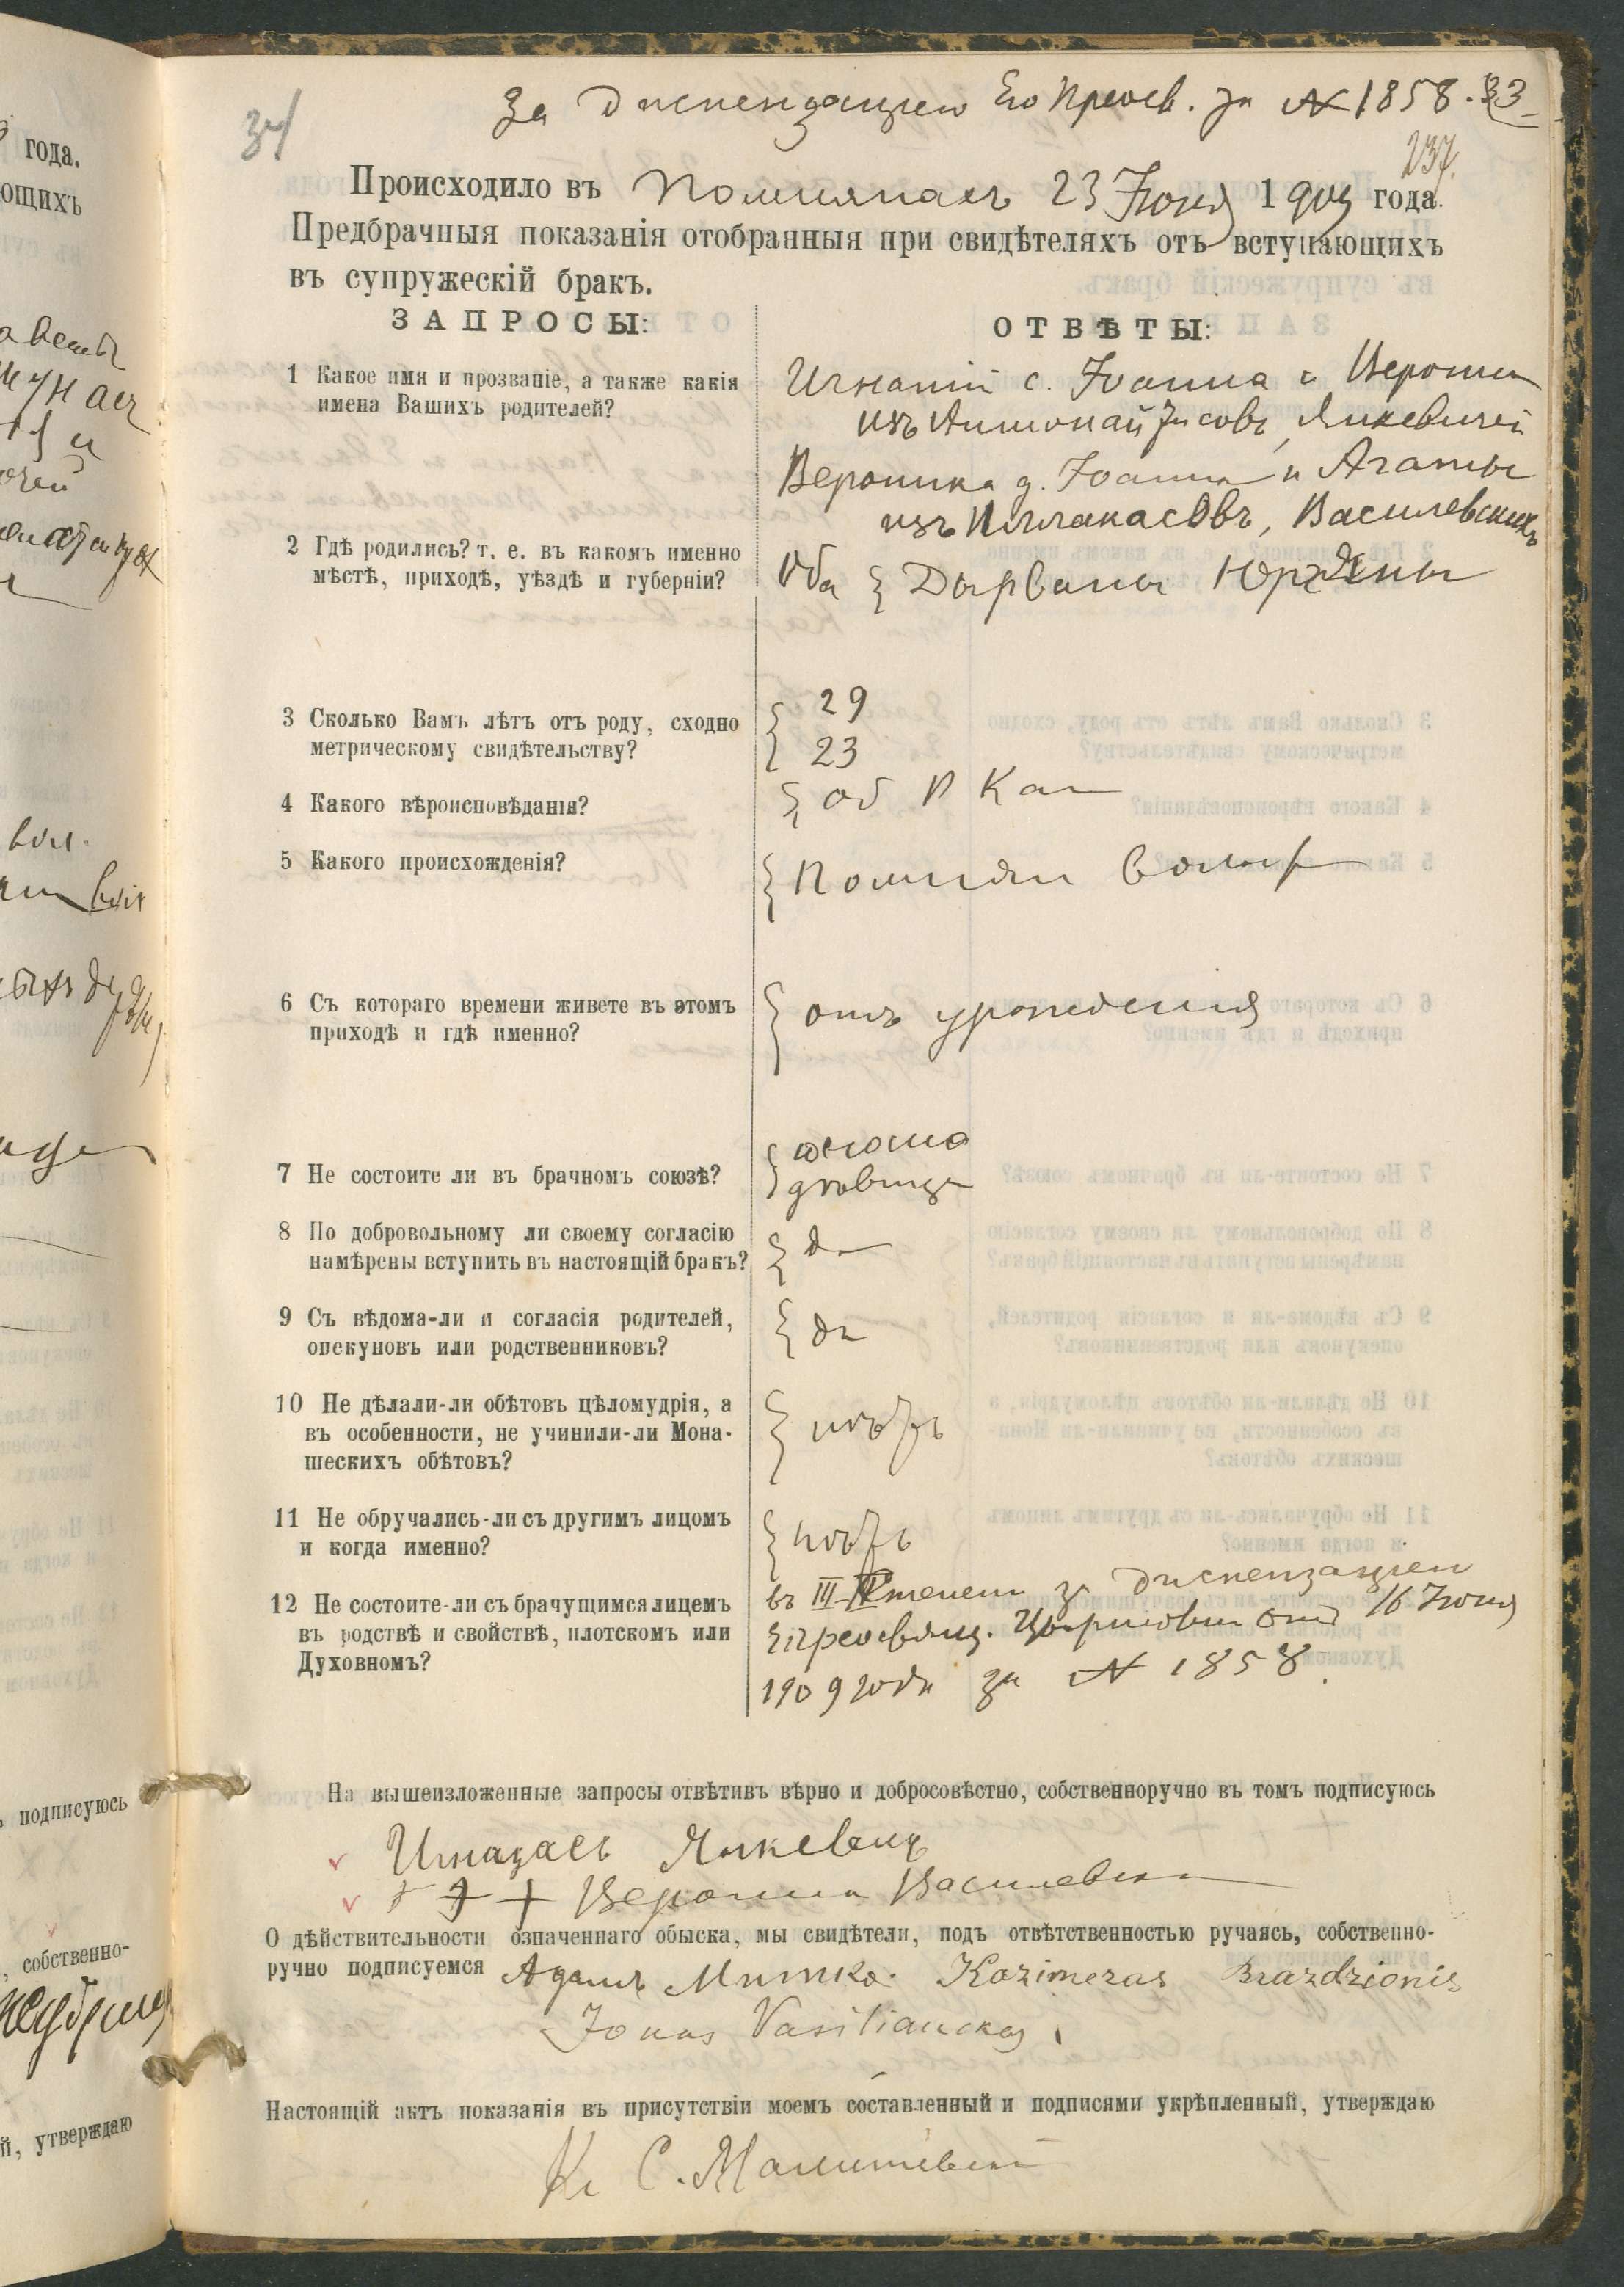 34
За диспензацiею Его Преосв. за № 1858. 33
237.
Происходило въ Помпянахъ 23 Iюня 1909 года.
Предбрачныя показанія отобранныя при свидѣтеляхъ отъ вступающихъ
въ супружескій бракъ.
ЗАПРОСЫ:
ОТВѢТЫ:
1 Какое имя и прозваніе, а также какія
имена Вашихъ родителей?
Игнатій с. Іоанна и
изъ Янкевичей
Вероника д. Іоанна и Агаты
изъ Василевскихъ
2 Гдѣ родились? т. е. въ какомъ именно
мѣстѣ, приходѣ, уѣздѣ и губерніи?
Оба Дырваны
3 Сколько Вамъ лѣтъ отъ роду, сходно
метрическому свидѣтельству?
29
23
4 Какого вѣроисповѣданія?
об Р Кат
5 Какого происхожденія?
Помпян вол
6 Съ котораго времени живете въ этомъ
приходѣ и гдѣ именно?
отъ урождения
7 Не состоите ли въ брачномъ союзѣ?
юноша
дѣвица
8 По добровольному ли своему согласію
намѣрены вступить въ настоящій бракъ?
да
9 Съ вѣдома-ли и согласія родителей,
опекуновъ или родственниковъ?
да
10 Не дѣлали-ли обѣтовъ цѣломудрія, а
въ особенности, не учинили-ли Мона-
шескихъ обѣтовъ?
нѣтъ
11 Не обручались-ли съ другимъ лицомъ
и когда именно?
нѣтъ
12 Не состоите-ли съ брачущимся лицемъ
въ родствѣ и свойствѣ, плотскомъ или
Духовномъ?
въ III степени за диспензацiею
Преосвящ. Циртовта отъ 16 Iюня
1909 года за № 1858.
На вышеизложенные запросы отвѣтивъ вѣрно и добросовѣстно, собственноручно въ томъ подписуюсь
Игнацасъ Янкевичъ
+ + + Вероника Василевская
О дѣйствительности означеннаго обыска, мы свидѣтели, подъ отвѣтственностью ручаясь, собственно-
ручно подписуемся Адамъ Митка. Kazimeras Brazdzionis
Jonas Vasiliauckas
Настоящій актъ показанія въ присутствіи моемъ составленный и подписями укрѣпленный, утверждаю
года.
ющихъ
подписуюсь
, собственно-
й, утверждаю